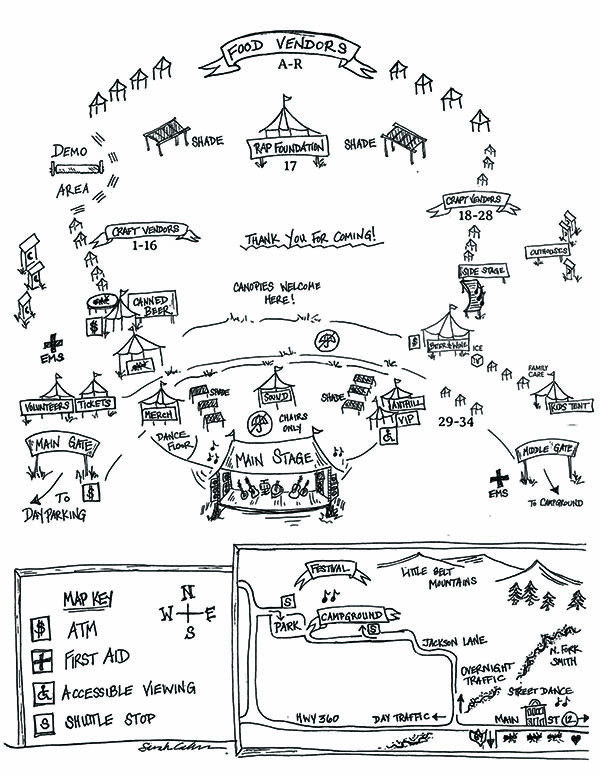 FOOD VENDORS
A-R
DEMO
AREA
SHADE
RAP FOUNDATION
17
SHADE
CRAFT VENDORS
1-16
CRAFT VENDORS
18-28
THANK YOU FOR COMING!
OUTHOUSES
SIDE STAGE
CANOPIES WELCOME
HERE!
CANNED
BEER
$
EMS
$
BEER & WINE
ICE
FAMILY
CARE
KIDS TENT
VOLUNTEERS
TICKETS
MERCH
SHADE
SOUND
SHADE
ANTHILL
VIP
29-34
CHAIRS
ONLY
DANCE
FLOOR
MAIN GATE
MAIN STAGE
MIDDLE GATE
TO
DAY PARKING
$
EMS
TO CAMPGROUND
MAP KEY
$ ATM
FIRST AID
ACCESSIBLE VIEWING
S SHUTTLE STOP
N
W E
S
FESTIVAL
LITTLE BELT
MOUNTAINS
S
PARK
CAMPGROUND
S
JACKSON LANE
N. FORK
SMITH
OVERNIGHT
TRAFFIC
STREET DANCE
HWY 360
DAY TRAFFIC
MAIN ST 12